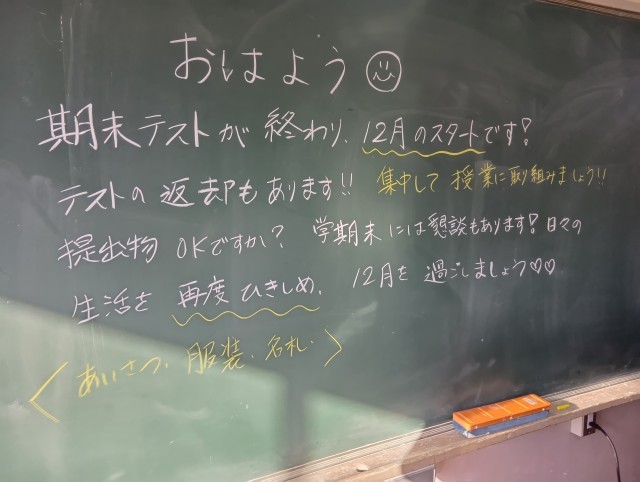 おはよう☺
期末テストが終わり、12月のスタートです!
テストの返却もあります!! 集中して授業に取り組みましょう!!
提出物OKですか? 学期末には懇談もあります!日々の
生活を再度ひきしめ、12月を過ごしましょう♡♡
〈あいさつ、服装、名札、〉